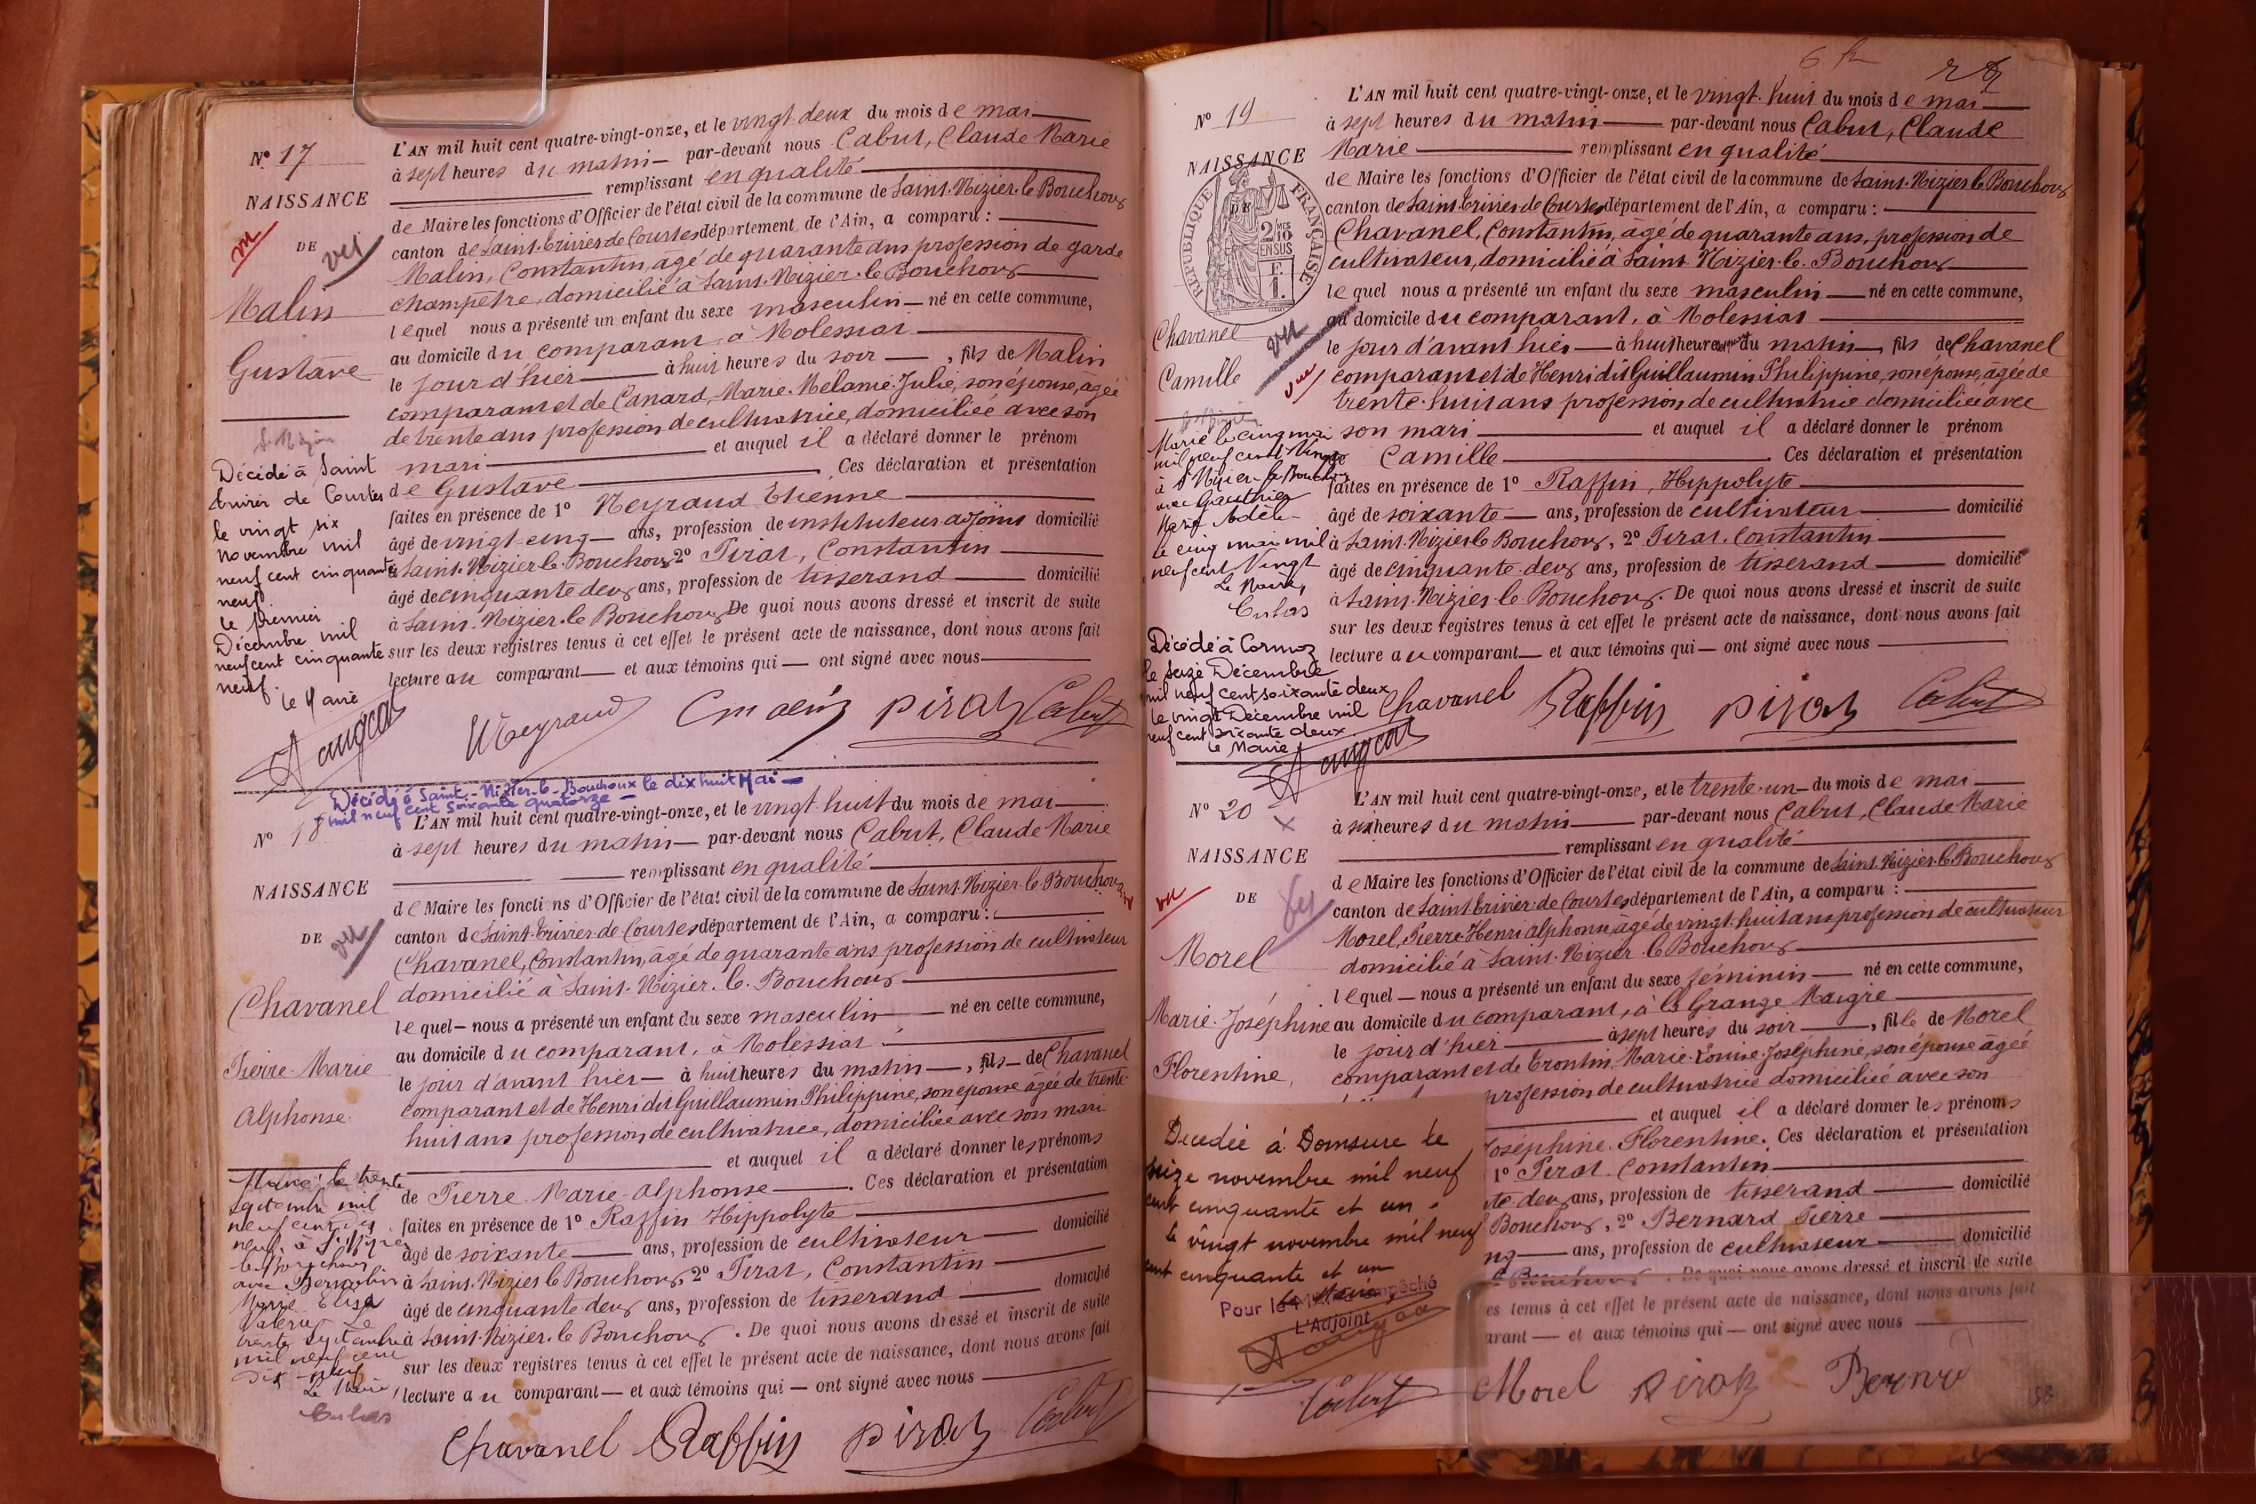 N° 17
NAISSANCE
DE
vu
Malin
Gustave
St Nizier
Décédé à Saint
Trivier de Courtes
le vingt six
novembre mil
neuf cent cinquante
neuf.
Le premier
Décembre mil
neuf cent cinquante
neuf.
Le Maire
L'AN mil huit cent quatre-vingt-onze, et le vingt deux du mois de mai
à sept heures du matin par-devant nous Cabut, Claude Marie
remplissant en qualité
de Maire les fonctions d'Officier de l'état civil de la commune de Saint-Nizier-le-Bouchoux
canton de Saint-Trivier-de-Courtes département de l'Ain, a comparu :
Malin, Constantin, âgé de quarante ans profession de garde
champêtre, domicilié à Saint-Nizier-le-Bouchoux
lequel nous a présenté un enfant du sexe masculin né en cette commune,
au domicile du comparant, à Molessiat
le jour d'hier à huit heures du soir, fils de Malin
comparant et de Canard, Marie-Mélanie-Julie, son épouse, âgée
de trente ans profession de cultivatrice, domiciliée avec son
mari et auquel il a déclaré donner le prénom
de Gustave. Ces déclaration et présentation
faites en présence de 1° Neyraud Etienne
âgé de vingt-cinq ans, profession de instituteur adjoint domicilié
à Saint-Nizier-le-Bouchoux 2° Pirat, Constantin
âgé de cinquante deux ans, profession de tisserand domicilié
à Saint-Nizier-le-Bouchoux De quoi nous avons dressé et inscrit de suite
sur les deux registres tenus à cet effet le présent acte de naissance, dont nous avons fait
lecture au comparant et aux témoins qui ont signé avec nous
Neyraud C malin Pirat Cabut
Décédé à Saint-Nizier-le-Bouchoux le dix huit Mai
mil neuf cent soixante quatorze
N° 18
NAISSANCE
DE
vu
Chavanel
Pierre-Marie
Alphonse.
Marié le trente
septembre mil
neuf cent dix
neuf, à St Nizier
le Bouchoux
avec
Marie Elisa
Valérie Le
trente septembre
mil neuf cent
dix-neuf
Le Maire,
L'AN mil huit cent quatre-vingt-onze, et le vingt-huit du mois de mai
à sept heures du matin par-devant nous Cabut, Claude Marie
remplissant en qualité
de Maire les fonctions d'Officier de l'état civil de la commune de Saint-Nizier-le-Bouchoux
canton de Saint-Trivier-de-Courtes département de l'Ain, a comparu :
Chavanel, Constantin, âgé de quarante ans profession de cultivateur
domicilié à Saint-Nizier-le-Bouchoux
lequel nous a présenté un enfant du sexe masculin né en cette commune,
au domicile du comparant, à Molessiat
le jour d'avant hier à huit heures du matin, fils de Chavanel
comparant et de Henri dit Guillaumin Philippine, son épouse âgée de trente
huit ans profession de cultivatrice, domiciliée avec son mari
et auquel il a déclaré donner les prénoms
de Pierre-Marie-Alphonse. Ces déclaration et présentation
faites en présence de 1° Raffin Hippolyte
âgé de soixante ans, profession de cultivateur domicilié
à Saint-Nizier-le-Bouchoux 2° Pirat, Constantin
âgé de cinquante deux ans, profession de tisserand domicilié
à Saint-Nizier-le-Bouchoux. De quoi nous avons dressé et inscrit de suite
sur les deux registres tenus à cet effet le présent acte de naissance, dont nous avons fait
lecture au comparant et aux témoins qui ont signé avec nous
Chavanel Raffin Pirat Cabut
N° 19
NAISSANCE
DE
RÉPUBLIQUE FRANÇAISE
2/10 MES
EN SUS
Chavanel
Camille
vu
vu
Marié le cinq mai
mil neuf cent Vingt
à St Nizier-le-Bouchoux
avec Gauthier
Marie Adèle
Le cinq mai mil
neuf cent Vingt
Le Maire,
Décédé à Cormoz
le seize Décembre
mil neuf cent soixante deux
le vingt Décembre mil
neuf cent soixante deux
Le Maire
L'AN mil huit cent quatre-vingt-onze, et le vingt-huit du mois de mai
à sept heures du matin par-devant nous Cabut, Claude
Marie remplissant en qualité
de Maire les fonctions d'Officier de l'état civil de la commune de Saint-Nizier-le-Bouchoux
canton de Saint-Trivier-de-Courtes département de l'Ain, a comparu :
Chavanel, Constantin, âgé de quarante ans, profession de
cultivateur, domicilié à Saint-Nizier-le-Bouchoux
lequel nous a présenté un enfant du sexe masculin né en cette commune,
au domicile du comparant, à Molessiat
le jour d'avant hier à huit heures du matin, fils de Chavanel
comparant et de Henri dit Guillaumin Philippine, son épouse, âgée de
trente-huit ans profession de cultivatrice domiciliée avec
son mari et auquel il a déclaré donner le prénom
Camille. Ces déclaration et présentation
faites en présence de 1° Raffin, Hippolyte
âgé de soixante ans, profession de cultivateur domicilié
à Saint-Nizier-le-Bouchoux, 2° Pirat, Constantin
âgé de cinquante-deux ans, profession de tisserand domicilié
à Saint-Nizier-le-Bouchoux. De quoi nous avons dressé et inscrit de suite
sur les deux registres tenus à cet effet le présent acte de naissance, dont nous avons fait
lecture au comparant et aux témoins qui ont signé avec nous
Chavanel Raffin Pirat Cabut
N° 20
NAISSANCE
DE
vu
Morel
Marie-Joséphine
Florentine,
L'AN mil huit cent quatre-vingt-onze, et le trente-un du mois de mai
à six heures du matin par-devant nous Cabut, Claude Marie
remplissant en qualité
de Maire les fonctions d'Officier de l'état civil de la commune de Saint-Nizier-le-Bouchoux
canton de Saint-Trivier-de-Courtes département de l'Ain, a comparu :
Morel, Pierre-Henri Alphonse, âgé de vingt-huit ans profession de cultivateur
domicilié à Saint-Nizier-le-Bouchoux
lequel nous a présenté un enfant du sexe féminin né en cette commune,
au domicile du comparant, à la Grange Maigre
le jour d'hier à sept heures du soir, fille de Morel
comparant et de Trontin, Marie-Louise-Joséphine, son épouse âgée
profession de cultivatrice domiciliée avec son
et auquel il a déclaré donner les prénoms
Joséphine Florentine. Ces déclaration et présentation
1° Pirat Constantin
te deux ans, profession de tisserand domicilié
Bouchoux, 2° Bernard Pierre
nq ans, profession de cultivateur domicilié
le Bouchoux. De quoi nous avons dressé et inscrit de suite
es tenus à cet effet le présent acte de naissance, dont nous avons fait
arant et aux témoins qui ont signé avec nous
Décédée à Domsure le
seize novembre mil neuf
cent cinquante et un.
le vingt novembre mil neuf
cent cinquante et un
Le Maire
Pour le Maire empêché
L'Adjoint
Cabut Morel Pirat Bernard